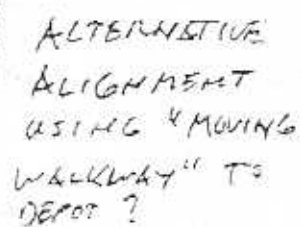 ALTERNATIVE
ALIGNMENT
USING "MOVING
WALKWAY" TO
DEPOT ?